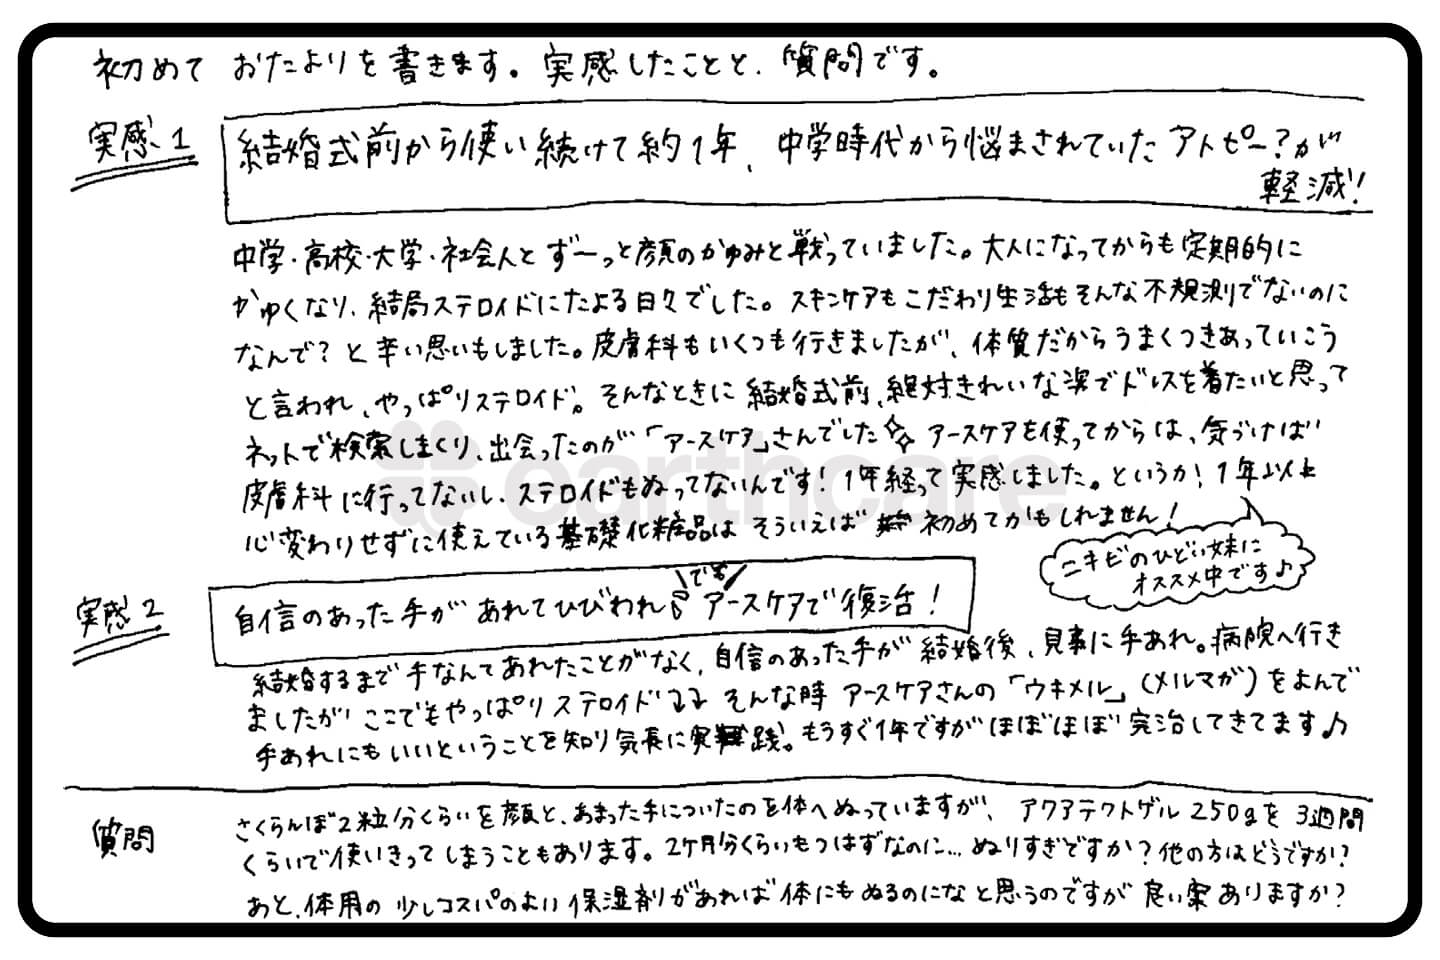 初めて おたよりを書きます。実感したことと、質問です。
実感1
結婚式前から使い続けて約1年、中学時代から悩まされていたアトピー?が
軽減!
中学・高校・大学・社会人とず〜っと顔のかゆみと戦っていました。大人になってからも定期的に
かゆくなり、結局ステロイドにたよる日々でした。スキンケアもこだわり生活もそんな不規則でないのに
なんで?と辛い思いもしました。皮膚科もいくつも行きましたが、体質だからうまくつきあっていこう
と言われ、やっぱりステロイド。そんなときに結婚式前、絶対きれいな姿でドレスを着たいと思って
ネットで検索しまくり、出会ったのが「アースケア」さんでした アースケアを使ってからは、気づけば
皮膚科に行ってないし、ステロイドもぬってないんです!1年経って実感しました。というか!1年以上
心変わりせずに使えている基礎化粧品はそういえば初めてかもしれません!
ニキビのひどい妹に
オススメ中です♪
実感2
自信のあった手があれてひびわれ でも アースケアで復活!
結婚するまで手なんてあれたことがなく、自信のあった手が結婚後、見事に手あれ。病院へ行き
ましたがここでもやっぱりステロイド↓↓ そんな時アースケアさんの「ウキメル」(メルマガ)をよんで
手あれにもいいということを知り気長に実践。もうすぐ1年ですがほぼほぼ完治してきてます♪
質問
さくらんぼ2粒分くらいを顔と、あまった手についたのを体へぬっていますが、アクアテクトゲル250gを3週間
くらいで使いきってしまうこともあります。2ケ月分くらいもつはずなのに…ぬりすぎですか?他の方はどうですか?
あと、体用の少しコスパのよい保湿剤があれば体にもぬるのになと思うのですが良い案ありますか?
earthcare